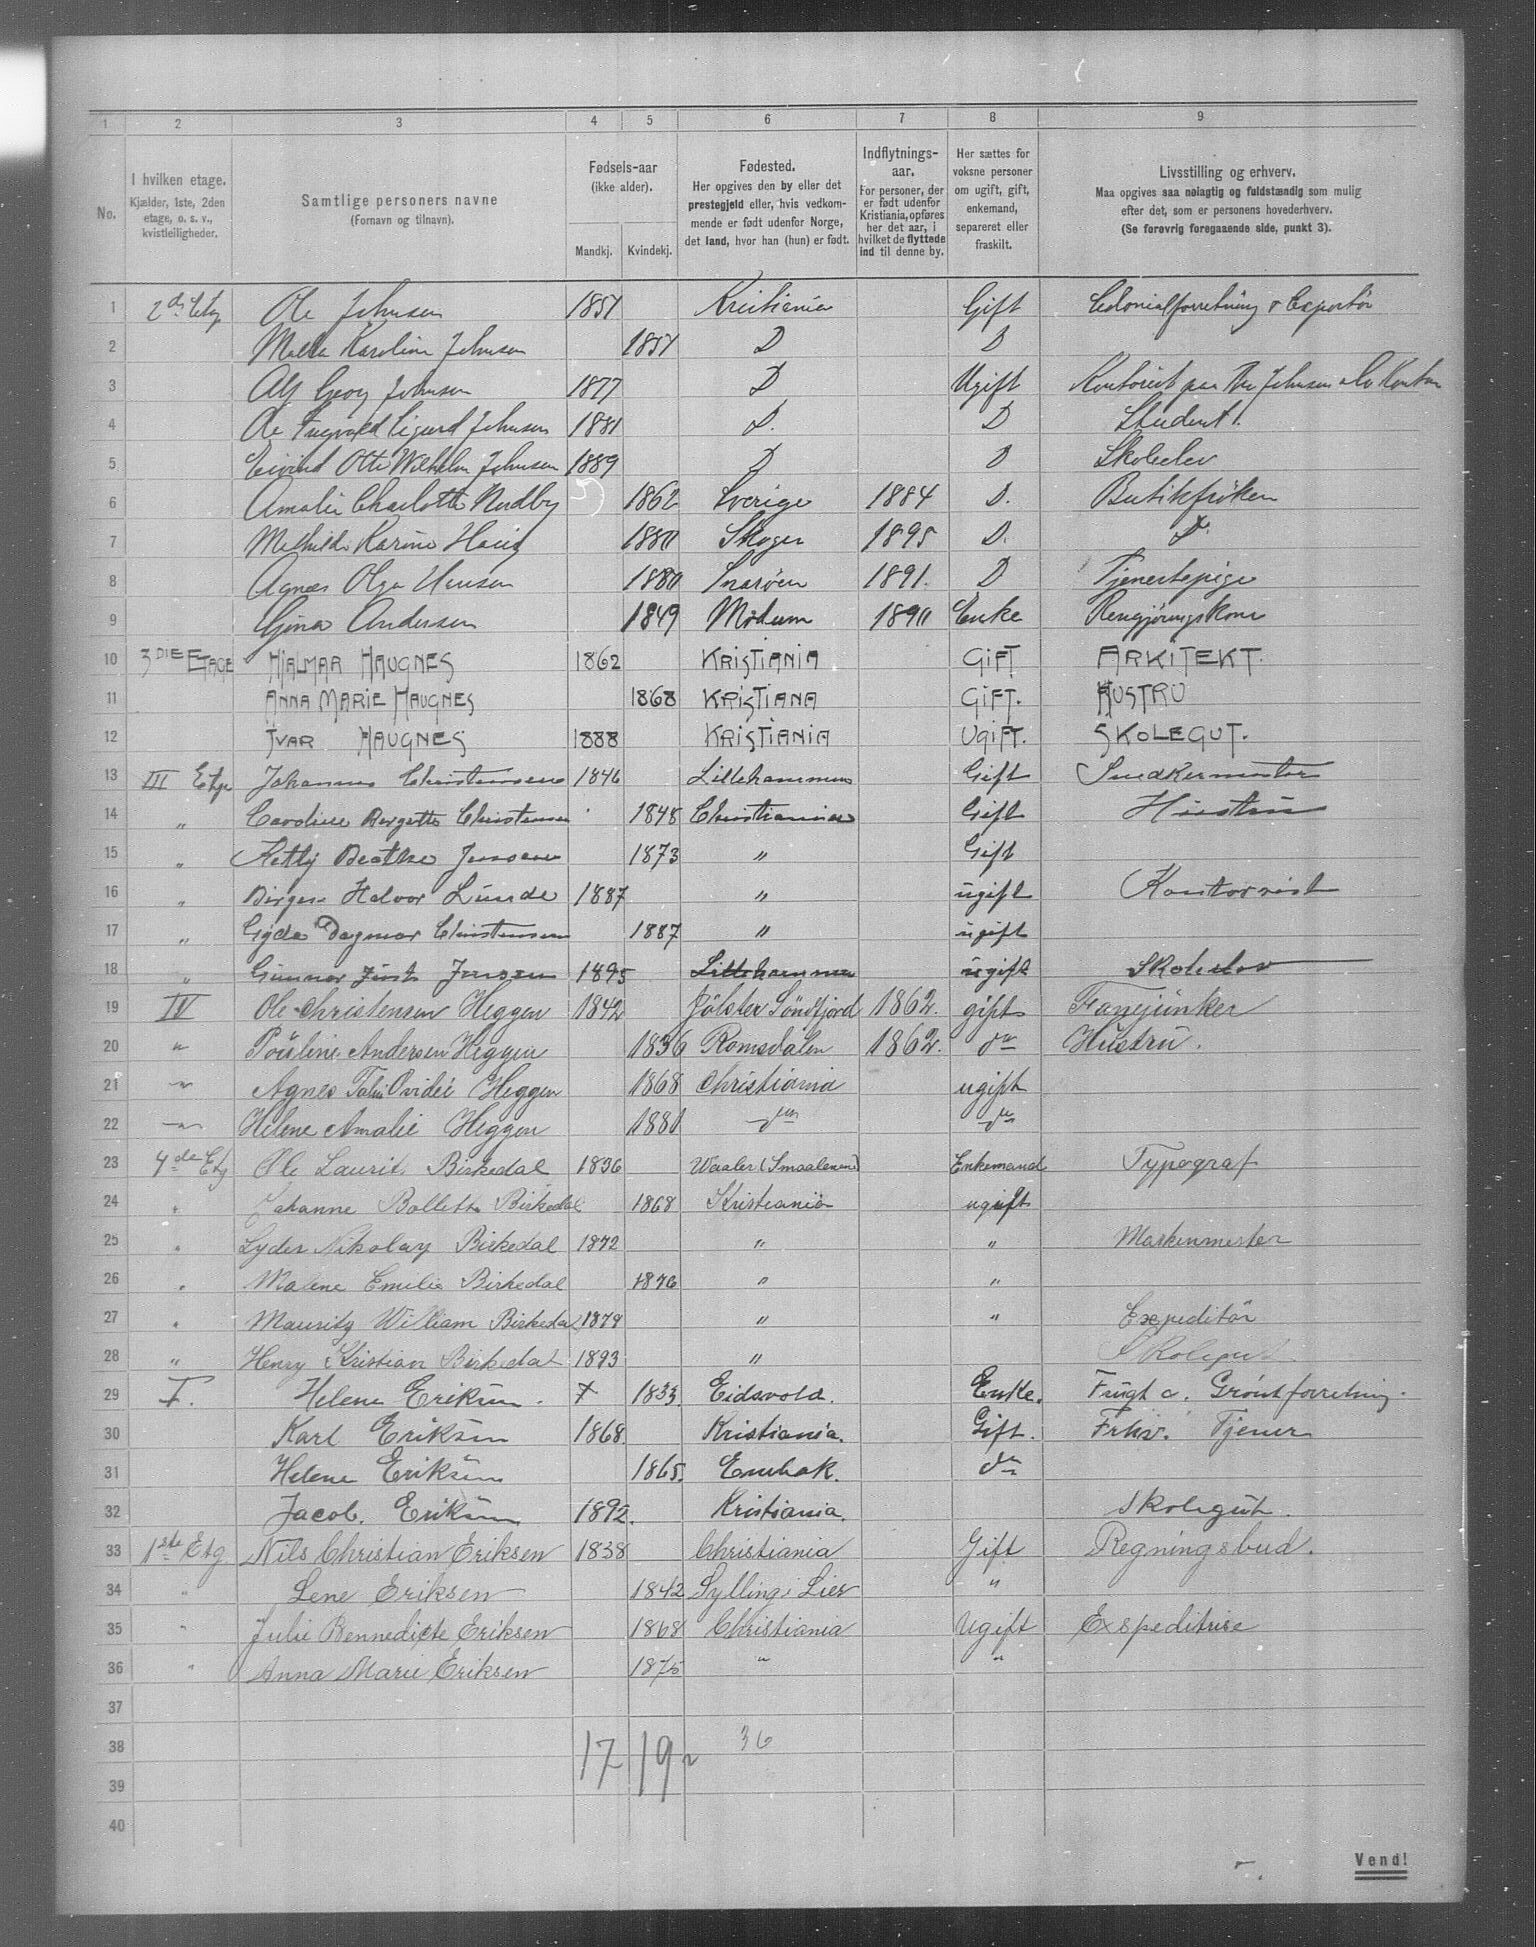 1 2 3 4 5 6 7 8 9
No.
I hvilken etage. Kjælder, 1ste, 2den etage, o. s. v., kvistleiligheder.
Samtlige personers navne (Fornavn og tilnavn).
Fødsels-aar (ikke alder). Mandkj. Kvindekj.
Fødested. Her opgives den by eller det prestegjeld eller, hvis vedkommende er født udenfor Norge, det land, hvor han (hun) er født.
Indflytnings-aar. For personer, der er født udenfor Kristiania, opføres her det aar, i hvilket de flyttede ind til denne by.
Her sættes for voksne personer om ugift, gift, enkemand, separeret eller fraskilt.
Livsstilling og erhverv. Maa opgives saa nøiagtig og fuldstændig som mulig efter det, som er personens hovederhverv. (Se forøvrig foregaaende side, punkt 3).
1 2den Etg Ole Johnsen 1851 Kristiania Gift Colonialforretning & Exportør
2 Karoline Johnsen 1857 D D
3 Alf Georg Johnsen 1877 D Ugift Kontorist paa Johnsen & Co Kontor
4 Ole Ingvald Sigurd Johnsen 1881 D. D Student.
5 Eivind Otto Wilhelm Johnsen 1889 D D Skoleelev
6 Amalie Charlotte Nordby 1862 Sverige 1884 D. Butikfrøken
7 Mathilde Karine Haug 1880 Skoger 1895 D. D.
8 Agnes Olga Hansen 1880 Snarøen 1891. D Tjenestepige
9 Gina Andersen 1849 Modum 1890 Enke Rengjøringskone
10 3DIE ETAGE HJALMAR HAUGNES 1862 KRISTIANIA GIFT ARKITEKT.
11 ANNA MARIE HAUGNES 1868 KRISTIANA GIFT. HUSTRU
12 IVAR HAUGNES 1888 KRISTIANIA UGIFT. SKOLEGUT.
13 III Etge Johannes Christensen 1846 Lillehammer Gift Snedkermester
14 " Caroline Bergette Christensen 1848 Christiania Gift Hustru
15 " Betsy Beathe Jensen 1873 " Gift
16 " Birger Halvor Lunde 1887 " ugift Kontorist
17 " Gyda Dagmar Christensen 1887 " ugift
18 " Gunnar Just Jensen 1895 Lillehammer ugift Skoleelev
19 IV Ole Christensen Heggen 1842 Jølster Søndfjord 1862. gift Fanejunker
20 " Andersen Heggen 1836 Romsdalen 1862. do Hustru.
21 " Agnes Ovidie Heggen 1868 Christiania ugift
22 " Helene Amalie Heggen 1881 do do
23 4de Etg Ole Laurits Birkedal 1836 Waaler (Smaalenene) Enkemand Typograf
24 " Johanne Bolette Birkedal 1868 Kristiania ugift
25 " Lyder Nikolay Birkedal 1872 " " Maskinmester
26 " Malene Emilie Birkedal 1876 " "
27 " Mauritz William Birkedal 1879 " " Expeditør
28 " Henry Kristian Birkedal 1893 " Skolegut
29 I. Helene Eriksen. + 1833. Eidsvold. Enke. Frugt o. Grøntforretning.
30 Karl Eriksen 1868. Kristiania. Gift. Frhv. Tjener
31 Helene Eriksen 1865. Enebak. do
32 Jacob. Eriksen 1892. Kristiania. Skolegut.
33 1ste Etg Nils Christian Eriksen 1838 Christiania Gift Regningsbud.
34 " Lene Eriksen 1842 Sylling i Lier "
35 " Julie Bennedicte Eriksen 1868 Christiania Ugift Expeditrise
36 " Anna Marie Eriksen 1875 " "
37
38 17 19 36
39
40
Vend!